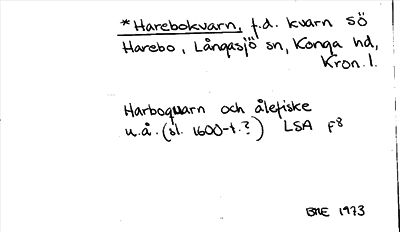 *Harebokvarn, f.d. kvarn SÖ
Harebo, Långasjö sn, Konga hd,
Kron. l.
Harboquarn och ålefiske
u.å. (sl. 1600-t.?) LSA F8
BHE 1973